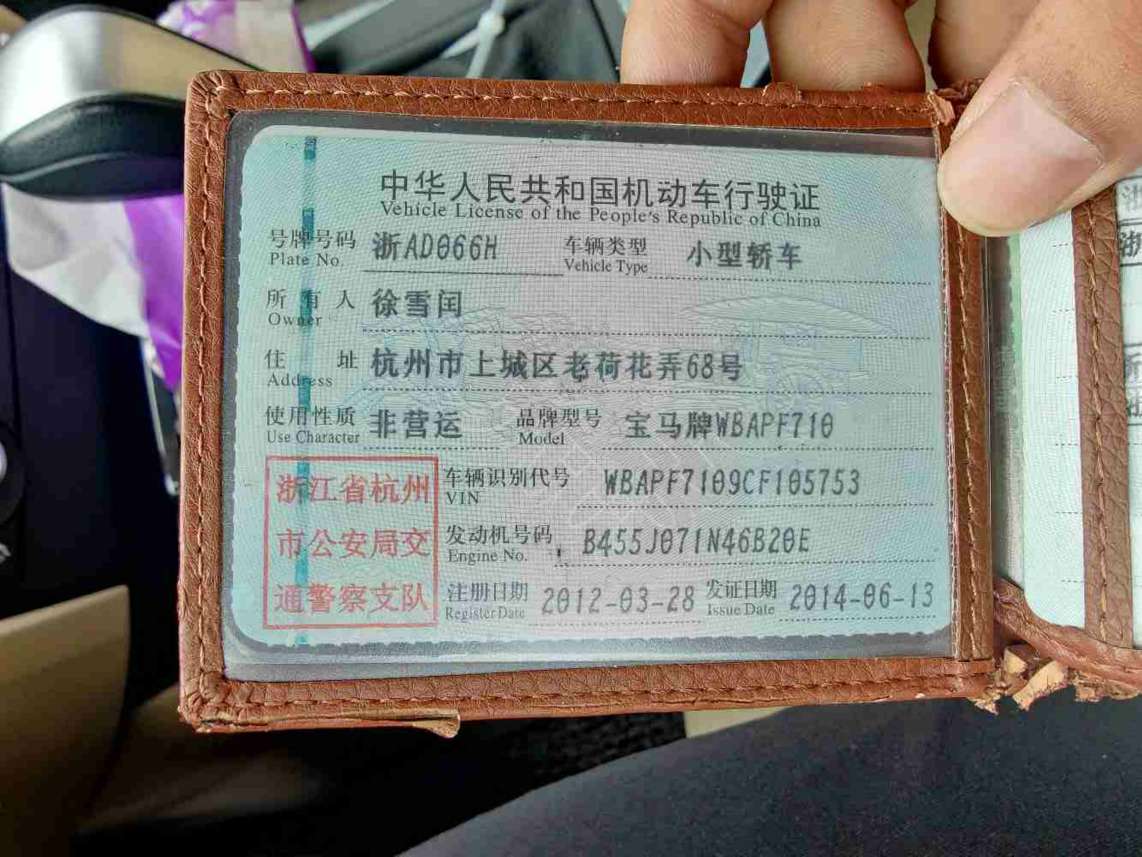 中华人民共和国机动车行驶证
Vehicle License of the People's Republic of China
号牌号码 浙AD066H 车辆类型 小型轿车
Plate No. Vehicle Type
所有人 徐雪闰
Owner
住址 杭州市上城区老荷花弄68号
Address
使用性质 非营运 品牌型号 宝马牌WBAPF710
Use Character Model
浙江省杭州
市公安局交
通警察支队
车辆识别代号 WBAPF7109CF105753
VIN
发动机号码 B455J071N46B20E
Engine No.
注册日期 2012-03-28 发证日期 2014-06-13
Register Date Issue Date
浙